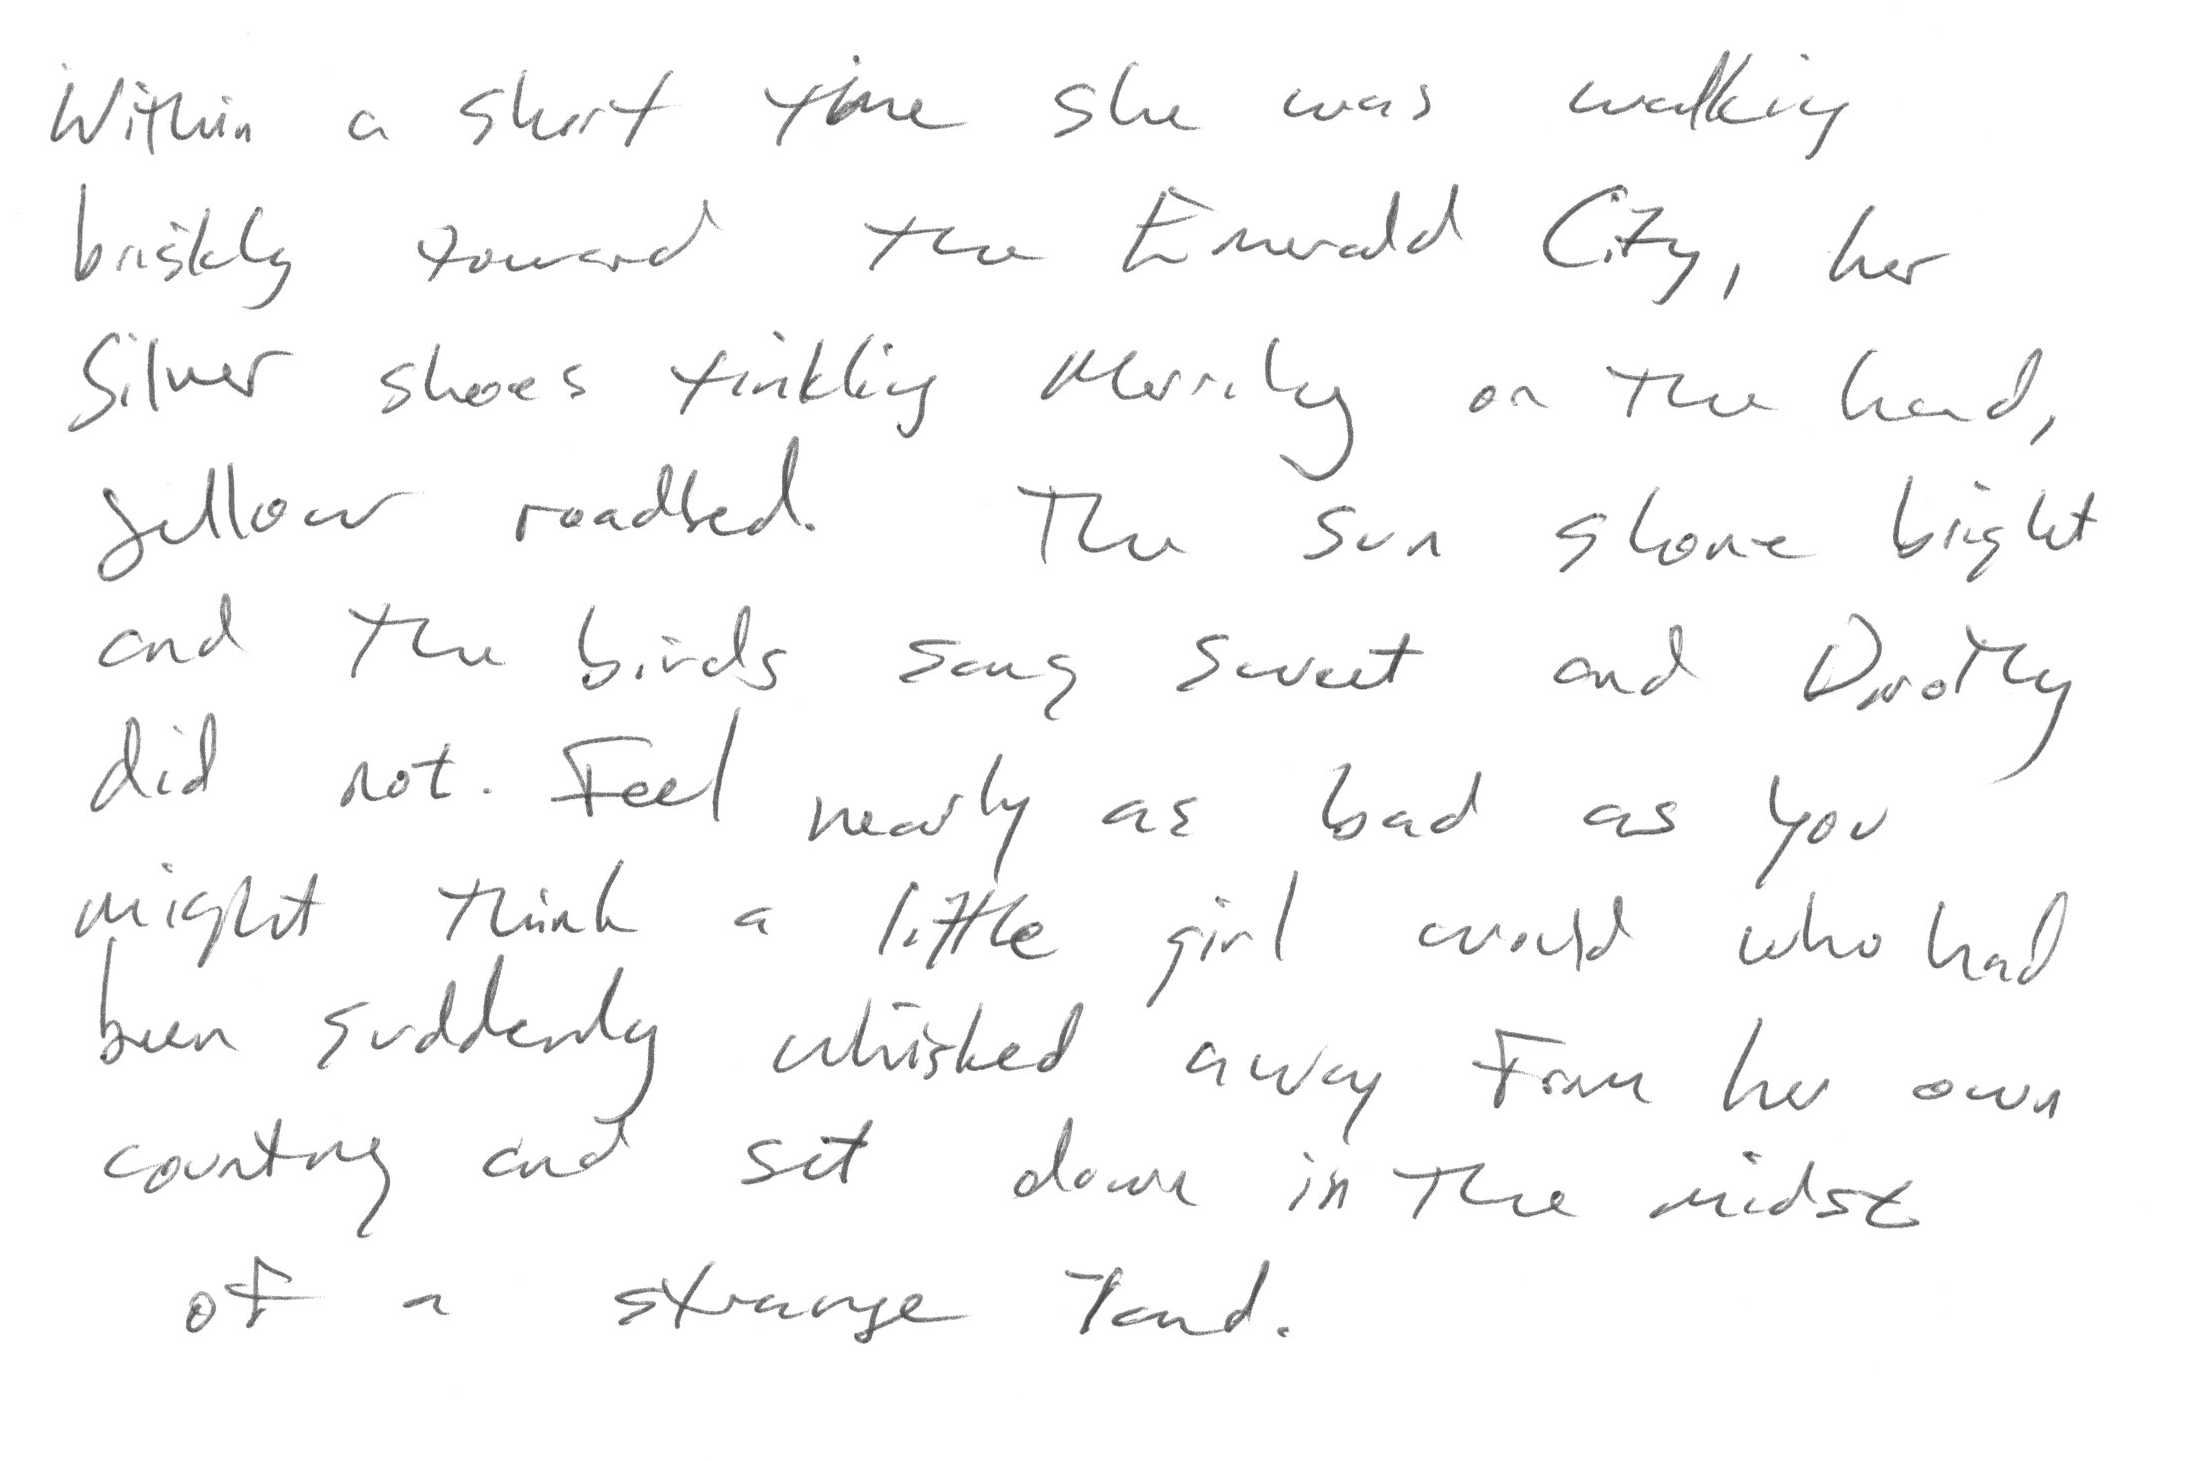 Within a short time she was walking
briskly toward the Emerald City, her
Silver shoes tinkling Merrily on the hard,
yellow roadbed. The sun shone bright
and the birds sang sweet and Dorothy
did not. Feel nearly as bad as you
might think a little girl would who had
been suddenly whisked away From her own
country and set down in the midst
of a strange land.